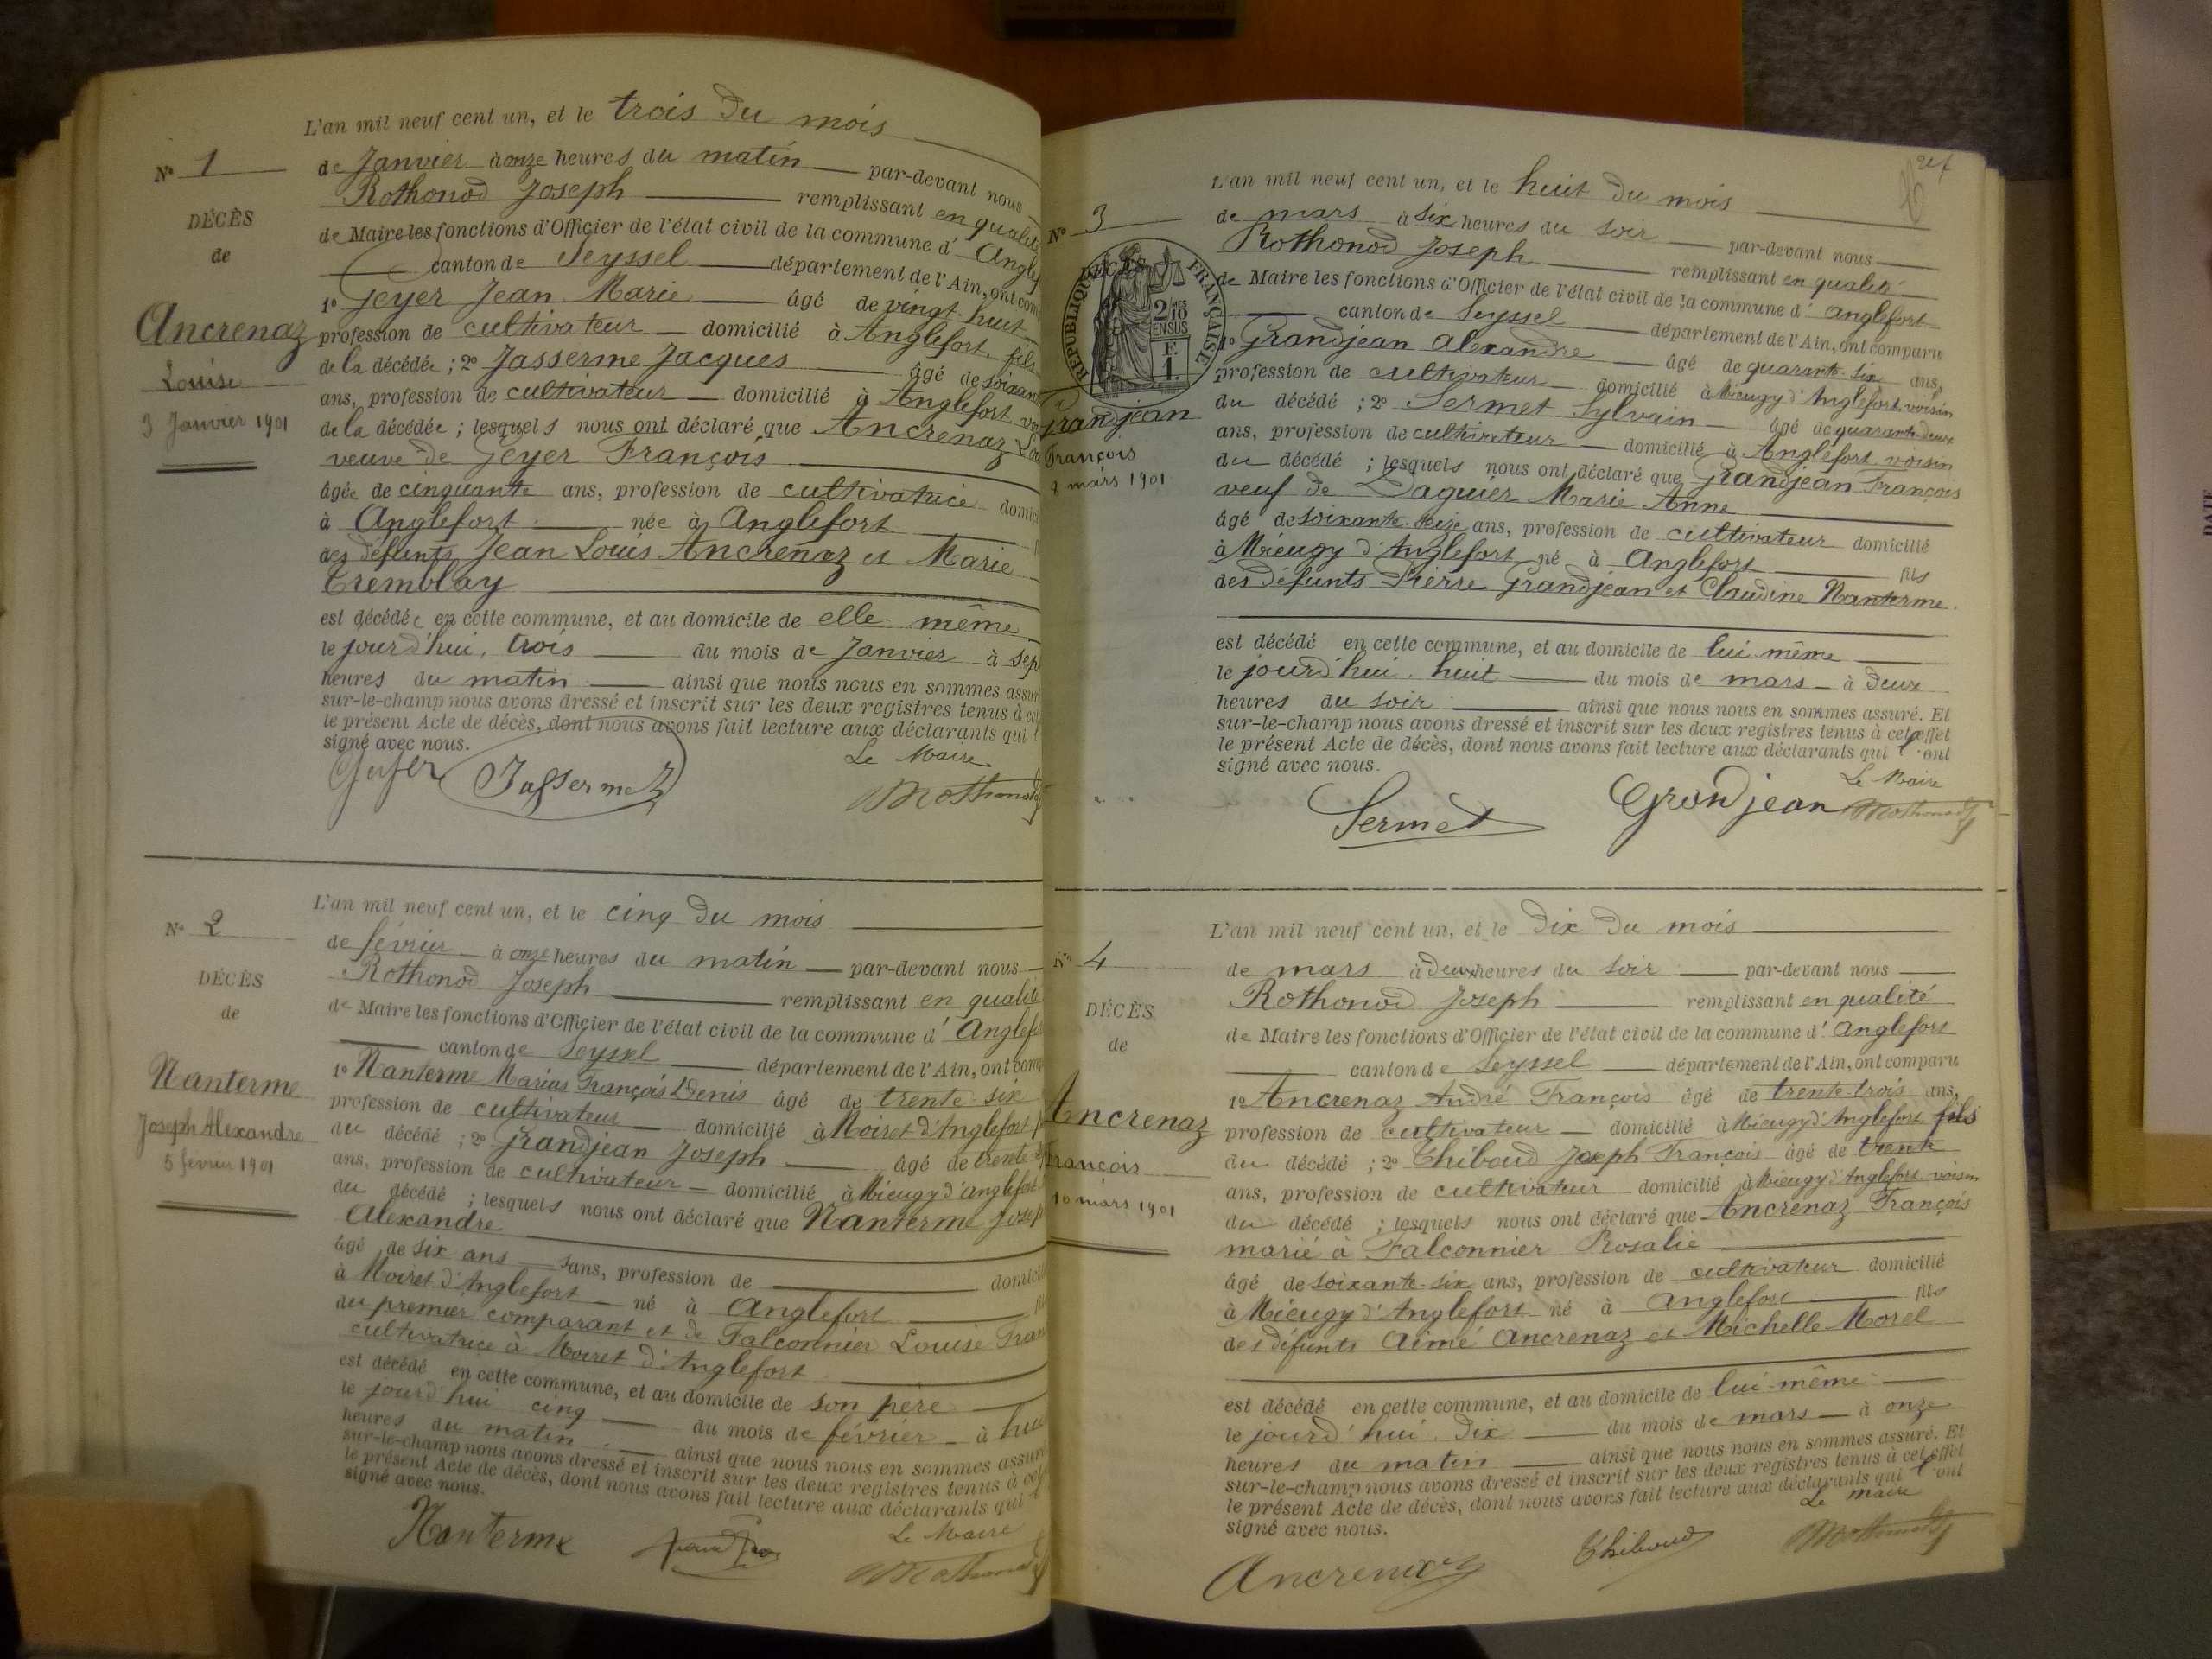 L'an mil neuf cent un, et le trois du mois
N° 1
de Janvier à onze heures du matin par-devant nous
Rothonod Joseph remplissant en qualité
DÉCÈS
de Maire les fonctions d'Officier de l'état civil de la commune d' Anglef
de
canton de Seyssel département de l'Ain, ont com
1° Geyer Jean Marie âgé de vingt-huit
Ancrenaz
profession de cultivateur domicilié à Anglefort, fils
Louise
de la décédée ; 2° Jasserme Jacques âgé de soixan
3 Janvier 1901
ans, profession de cultivateur domicilié à Anglefort vo
de la décédée ; lesquels nous ont déclaré que Ancrenaz Lou
veuve de Geyer François
âgée de cinquante ans, profession de cultivatrice domici
à Anglefort née à Anglefort
des défunts Jean Louis Ancrenaz et Marie
Tremblay
est décédée en cette commune, et au domicile de elle-même
le jourd'hui, trois du mois de Janvier à sep
heures du matin ainsi que nous nous en sommes assur
sur-le-champ nous avons dressé et inscrit sur les deux registres tenus à cet
le présent Acte de décès, dont nous avons fait lecture aux déclarants qui l'
signé avec nous.
Le Maire
Geyer Jassermez Rothonod
L'an mil neuf cent un, et le cinq du mois
N° 2
de février à onze heures du matin par-devant nous
Rothonod Joseph remplissant en qualité
DÉCÈS
de Maire les fonctions d'Officier de l'état civil de la commune d' Anglefo
de
canton de Seyssel département de l'Ain, ont com
1° Nanterme Marius François Denis âgé de trente-six
Nanterme
profession de cultivateur domicilié à Moiret d'Anglefort p
Joseph Alexandre
du décédé ; 2° Grandjean Joseph âgé de trente
5 février 1901
ans, profession de cultivateur domicilié à Mieugy d'anglefort
du décédé ; lesquels nous ont déclaré que Nanterme Josep
Alexandre
âgé de six ans sans, profession de domicil
à Moiret d'Anglefort né à Anglefort fil
du premier comparant et de Falconnier Louise Fran
cultivatrice à Moiret d'Anglefort
est décédé en cette commune, et au domicile de son père
le jourd'hui cinq du mois de février à hui
heures du matin ainsi que nous nous en sommes assur
sur-le-champ nous avons dressé et inscrit sur les deux registres tenus à cet
le présent Acte de décès, dont nous avons fait lecture aux déclarants qui l'
signé avec nous.
Le Maire
Nanterme Rothonod
L'an mil neuf cent un, et le huit du mois
N° 3
de mars à six heures du soir par-devant nous
Rothonod Joseph remplissant en qualité
DÉCÈS
RÉPUBLIQUE FRANÇAISE
2 MES 10 EN SUS
F. 1.
de Maire les fonctions d'Officier de l'état civil de la commune d' anglefort
canton de Seyssel département de l'Ain, ont comparu
1° Grandjean Alexandre âgé de quarante-six ans,
profession de cultivateur domicilié à Mieugy d'Anglefort, voisin
Grandjean
du décédé ; 2° Sermet Sylvain âgé de quarante-deux
François
ans, profession de cultivateur domicilié à Anglefort voisin
mars 1901
du décédé ; lesquels nous ont déclaré que Grandjean François
veuf de Daguier Marie Anne
âgé de soixante-seize ans, profession de cultivateur domicilié
à Mieugy d'Anglefort né à Anglefort fils
des défunts Pierre Grandjean et Claudine Nanterme.
est décédé en cette commune, et au domicile de lui même
le jourd'hui, huit du mois de mars à deux
heures du soir ainsi que nous nous en sommes assuré. Et
sur-le-champ nous avons dressé et inscrit sur les deux registres tenus à cet effet
le présent Acte de décès, dont nous avons fait lecture aux déclarants qui l'ont
signé avec nous.
Le Maire
Sermet Grandjean Rothonod
L'an mil neuf cent un, et le dix du mois
N° 4
de mars à deux heures du soir par-devant nous
Rothonod Joseph remplissant en qualité
DÉCÈS
de Maire les fonctions d'Officier de l'état civil de la commune d' anglefort
de
canton de Seyssel département de l'Ain, ont comparu
1° Ancrenaz André François âgé de trente-trois ans,
Ancrenaz
profession de cultivateur domicilié à Mieugy d'Anglefort fils
François
du décédé ; 2° Thiboud Joseph François âgé de trente
10 mars 1901
ans, profession de cultivateur domicilié à Mieugy d'Anglefort voisin
du décédé ; lesquels nous ont déclaré que Ancrenaz François
marié à Falconnier Rosalie
âgé de soixante-six ans, profession de cultivateur domicilié
à Mieugy d'Anglefort né à anglefort fils
des défunts Aimé Ancrenaz et Michelle Morel
est décédé en cette commune, et au domicile de lui-même
le jourd'hui, dix du mois de mars à onze
heures du matin ainsi que nous nous en sommes assuré. Et
sur-le-champ nous avons dressé et inscrit sur les deux registres tenus à cet effet
le présent Acte de décès, dont nous avons fait lecture aux déclarants qui l'ont
signé avec nous.
Le maire
Ancrenaz Thiboud Rothonod
DATE